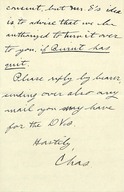 consent, but Mr. E's idea
is to advise that we be
authorized to turn it over
to you, if Burnt has
quit.
Please reply by bearer,
sending over also any
mail you may have
for the D.V.s
Hastily,
Chas